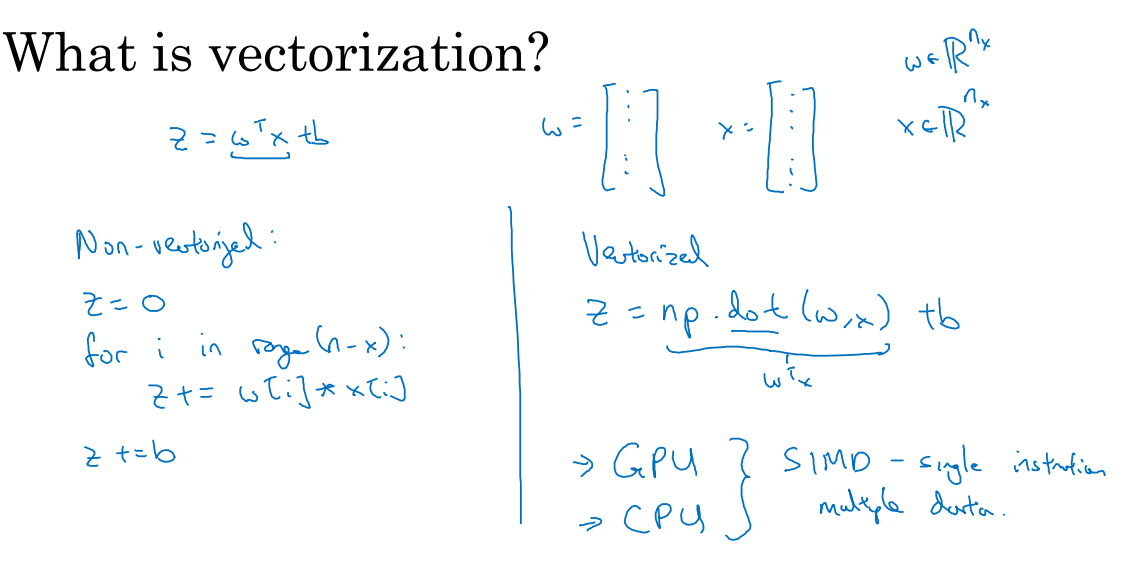 What is vectorization?
z = wᵀx + b
w = [⋮] x = [⋮]
w ∈ ℝⁿˣ
x ∈ ℝⁿˣ
Non-vectorized:
z = 0
for i in range(n-x):
z += w[i] * x[i]
z += b
Vectorized
z = np.dot(w,x) + b
wᵀx
→ GPU
→ CPU
SIMD - single instruction
multiple data.